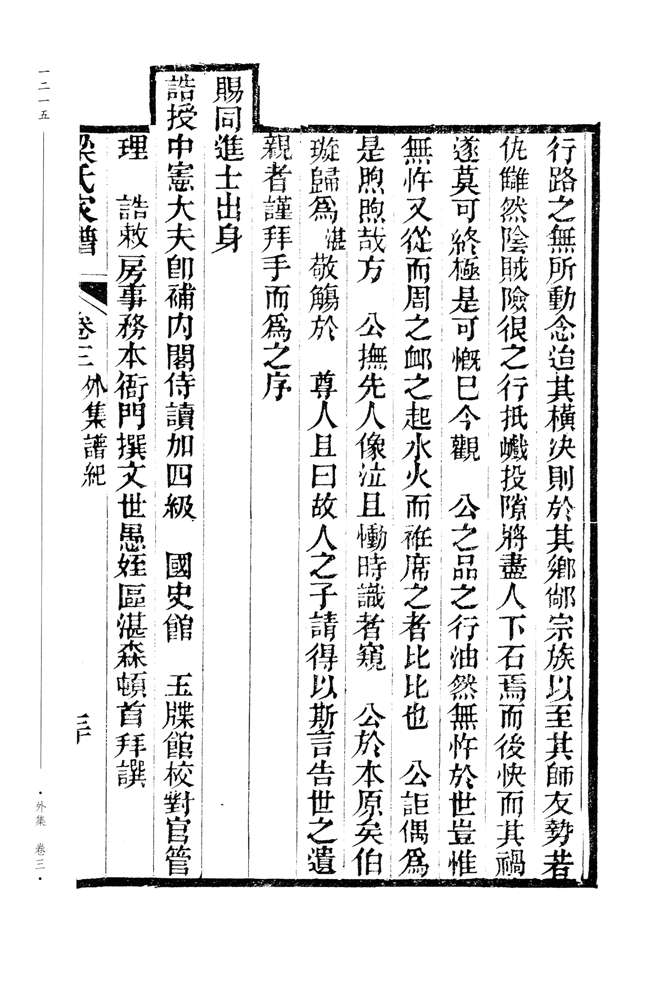 行路之無所動念迨其橫决則於其鄉鄰宗族以至其師友勢若
仇讎然陰賊險很之行抵巇投隙將盡人下石焉而後快而其禍
遂莫可終極是可慨巳今觀　公之品之行油然無忤於世豈惟
無忤又從而周之䘏之起水火而袵席之者比比也　公詎偶爲
是煦煦哉方　公撫先人像泣且慟時識者窺　公於本原矣伯
璇歸爲湛敬觴於　尊人且曰故人之子請得以斯言告世之遺
親者謹拜手而爲之序
賜同進士出身
誥授中憲大夫卽補內閣侍讀加四級　國史館　玉牒館校對官管
理　誥敕房事務本衙門撰文世愚姪區湛森頓首拜譔
梁氏家譜　卷三　外集譜紀　三十
一二一五
·外集　卷三·